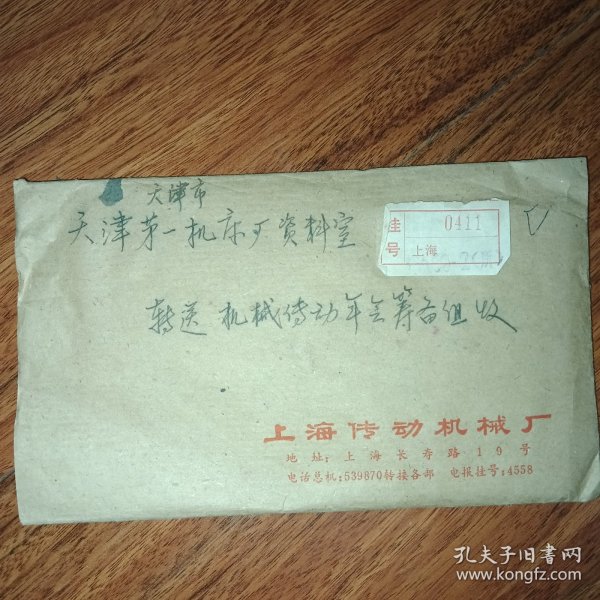 天津市
天津第一机床厂资料室
挂号
0411
上海
转送 机械传动年会筹备组收
上海传动机械厂
地址:上海长寿路19号
电话总机:539870转接各部 电报挂号:4558
孔夫子旧书网
www.kongfz.com